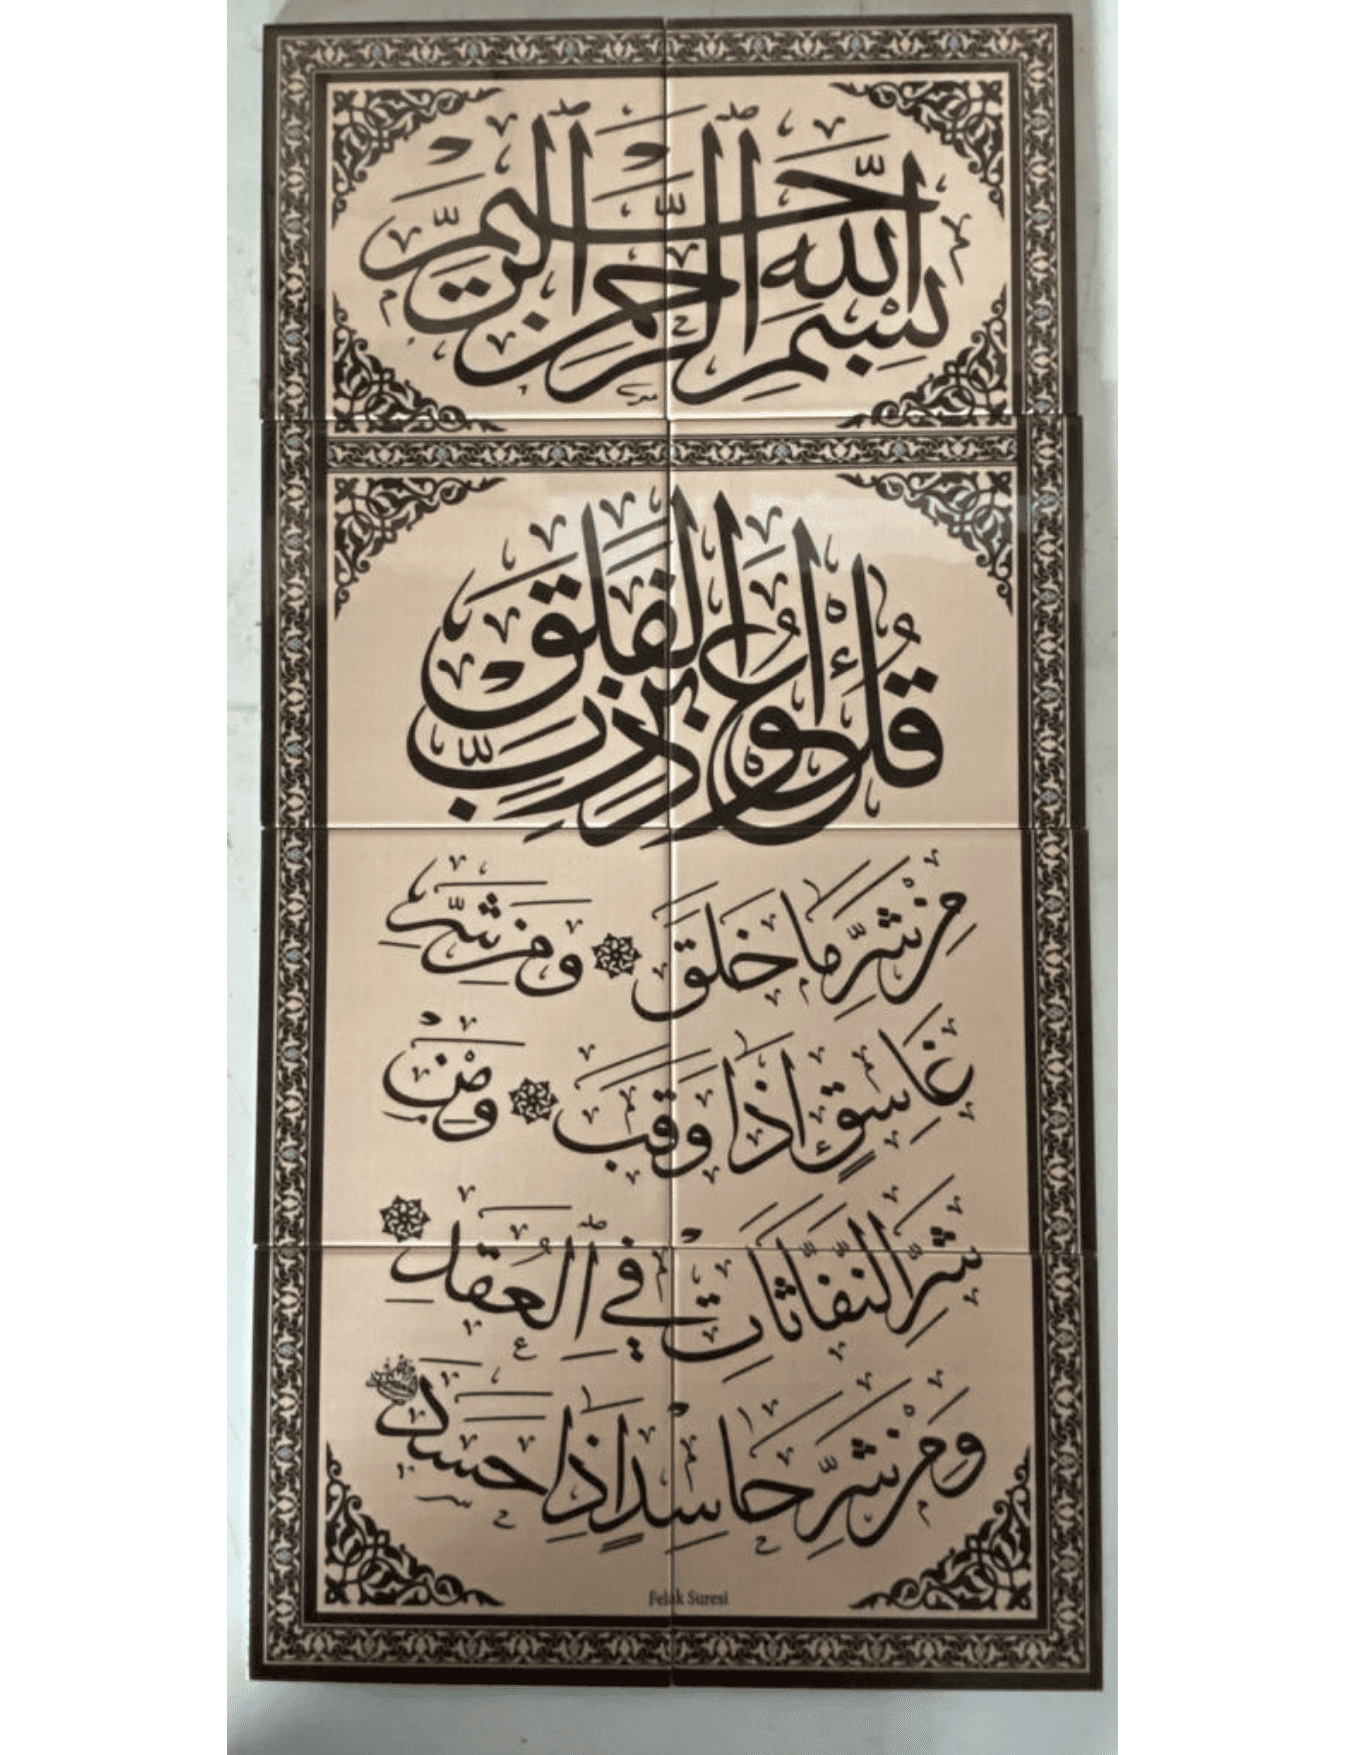 بِسْمِ اللهِ الرَّحْمٰنِ الرَّحِيمِ
قُلْ أَعُوذُ بِرَبِّ الْفَلَقِ
مِنْ شَرِّ مَا خَلَقَ وَمِنْ شَرِّ
غَاسِقٍ اِذَا وَقَبَ وَمِنْ
شَرِّ النَّفَّاثَاتِ فِي الْعُقَدِ
وَمِنْ شَرِّ حَاسِدٍ اِذَا حَسَدَ
Felak Suresi